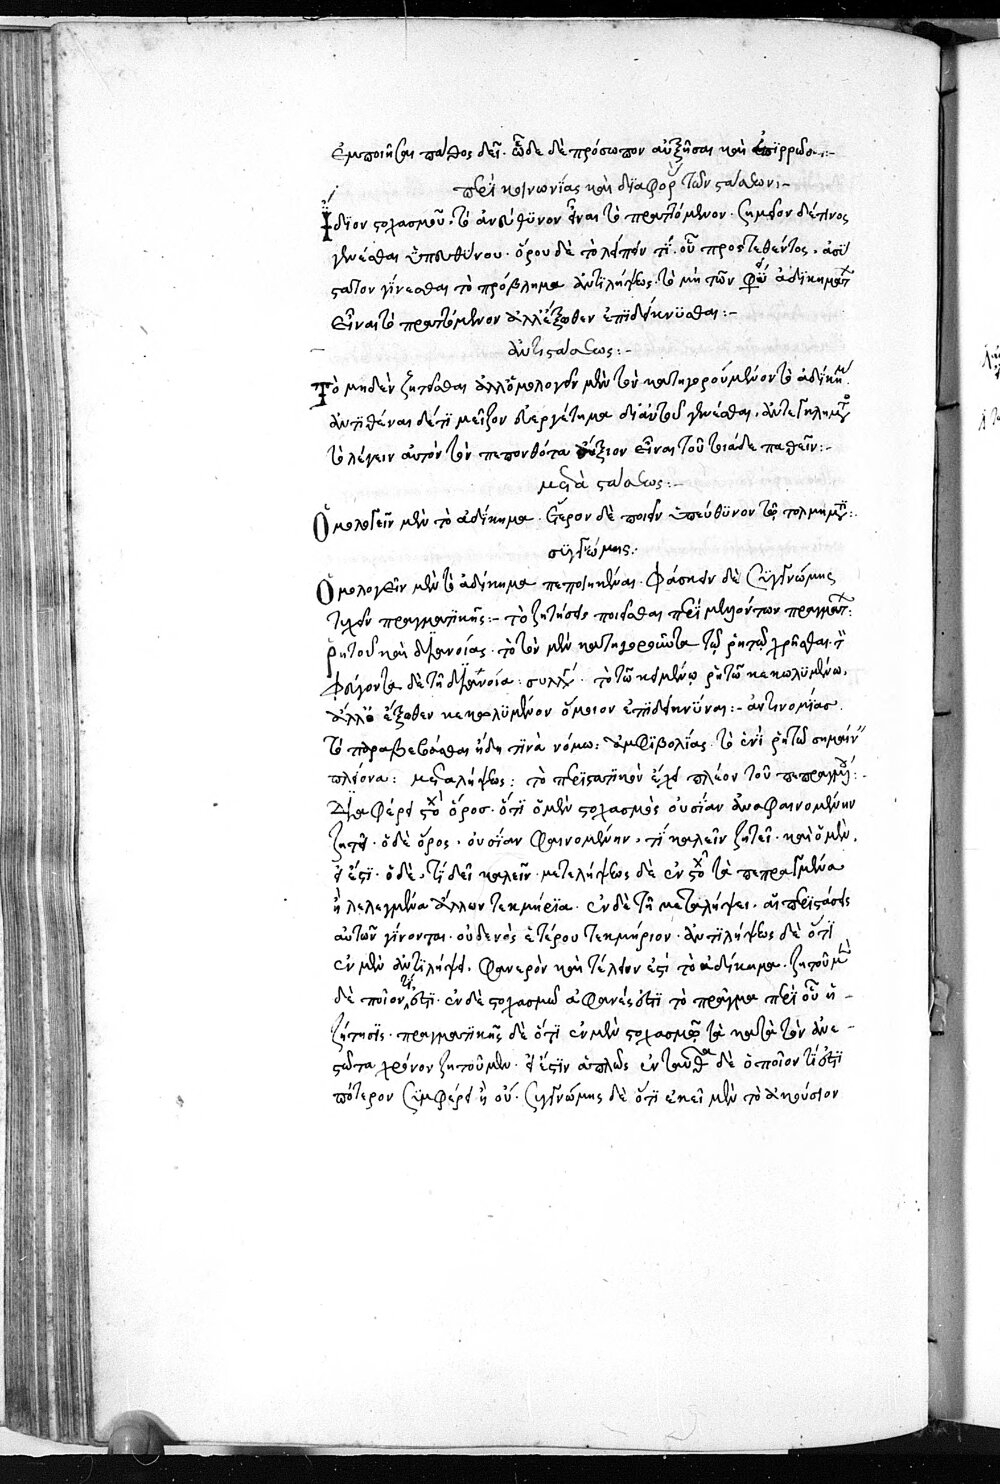 ἐμποιῆσαι πάθος δεῖ. ὧδε δὲ πρόσωπον αὐξῆσαι καὶ
περὶ κοινωνίας καὶ διαφορ τῶν στάσεων:-
Ἴδϊον στοχασμοῦ, τὸ ἀνεύθυνον εἶναι τὸ πραττόμενον. σημεῖον δέ τινος
γενέσθαι ὑπευθύνου. ὅρου δὲ τὸ λείπειν τί. οὗ προστεθέντος,
γίνεσθαι τὸ πρόβλημα ἀντιλήψεως. τὸ μὴ τῶν ἀδικημάτ
εἶναι τὸ πραττόμενον ἀλλ' ἔξωθεν ἐπιδείκνυσθαι:-
ἀντιστάσεως:-
Τὸ μηδὲν ζητεῖσθαι ἀλλ' ὁμολογεῖν μὲν τὸν κατηγορούμενον τὸ ἀδίκημ.
ἀντιθέναι δέ τι μεῖζον εὐεργέτημα δι' αὐτοῦ γενέσθαι. ἀντεγκλημ
τὸ λέγειν αὐτὸν τὸν πεπονθότα ἄξιον εἶναι τοῦ τοιάδε παθεῖν:-
μεταστάσεως:-
Ὁμολογεῖν μὲν τὸ ἀδίκημα. ἕτερον δὲ ποιεῖν ὑπεύθυνον τῷ τολμημ:
συγγνώμης.
Ὁμολογεῖν μὲν τὸ ἀδίκημα πεποιηκέναι. φάσκειν δὲ συγγνώμης
τυχεῖν πραγματικῆς:- τὸ ζήτησιν ποιεῖσθαι περὶ μελλόντων πραγμάτ:
ῥητοῦ καὶ διανοίας. τὸ τὸν μὲν κατηγοροῦντα τῷ ῥητῷ χρῆσθαι. τ
φεύγοντα δὲ τῇ διανοία: συλλ. τὸ τῷ κειμένῳ ῥητῷ κεκωλυμένω,
ἀλλο ἔξωθεν κεκωλυμένον ὅμοιον ἐπιδεικνύναι:- ἀντινομίας.
τὸ παραβεβάσθαι ἤδη τινὰ νόμω: ἀμφιβολίας. τὸ ἑνὶ ῥητῷ σημαίν
πλείονα: μεταλήψεως: τὸ περιστατικὸν ἔχει πλέον τοῦ πεπραγμ:-
Διαφέρει στο ὅρος. ὅτι ὁ μὲν στοχασμὸς οὐσίαν ἀναφαινομένην
ζητεῖ. ὁ δὲ ὅρος, οὐσίαν φαινομένην, τί καλεῖν ζητεῖ. καὶ ὁ μὲν,
εἰ ἔστι. ὁ δὲ, τί δεῖ καλεῖν. μεταλήψεως δὲ ἐν στο τὰ πεπραγμένα
ἢ λελεγμένα ἄλλων τεκμήρια. ἐν δὲ τῇ μεταλήψει, αἱ περιστάσεις
αὐτῶν γίνονται. οὐδενὸς ἑτέρου τεκμήριον. ἀντιλήψεως δὲ ὅτι
ἐν μὲν ἀντιλήψει, φανερὸν καὶ τέλειον ἐστὶ τὸ ἀδίκημα. ζητοῦμεν
δὲ ποῖον τί ἐστι. ἐν δὲ στοχασμῶ ἀφανές ἐστι τὸ πρᾶγμα περὶ οὗ ἡ
ζήτησις. πραγματικῆς δὲ ὅτι ἐν μὲν στοχασμῷ τὰ κατὰ τὸν ἐνε-
στῶτα χρόνον ζητοῦμεν. εἰ ἔστιν ἁπλῶς ἐνταῦθα δὲ ὁποῖον τί ἐστι
πότερον συμφέρει ἢ οὔ. συγγνώμης δὲ ὅτι ἐκεῖ μὲν τὸ ἀκούσιον